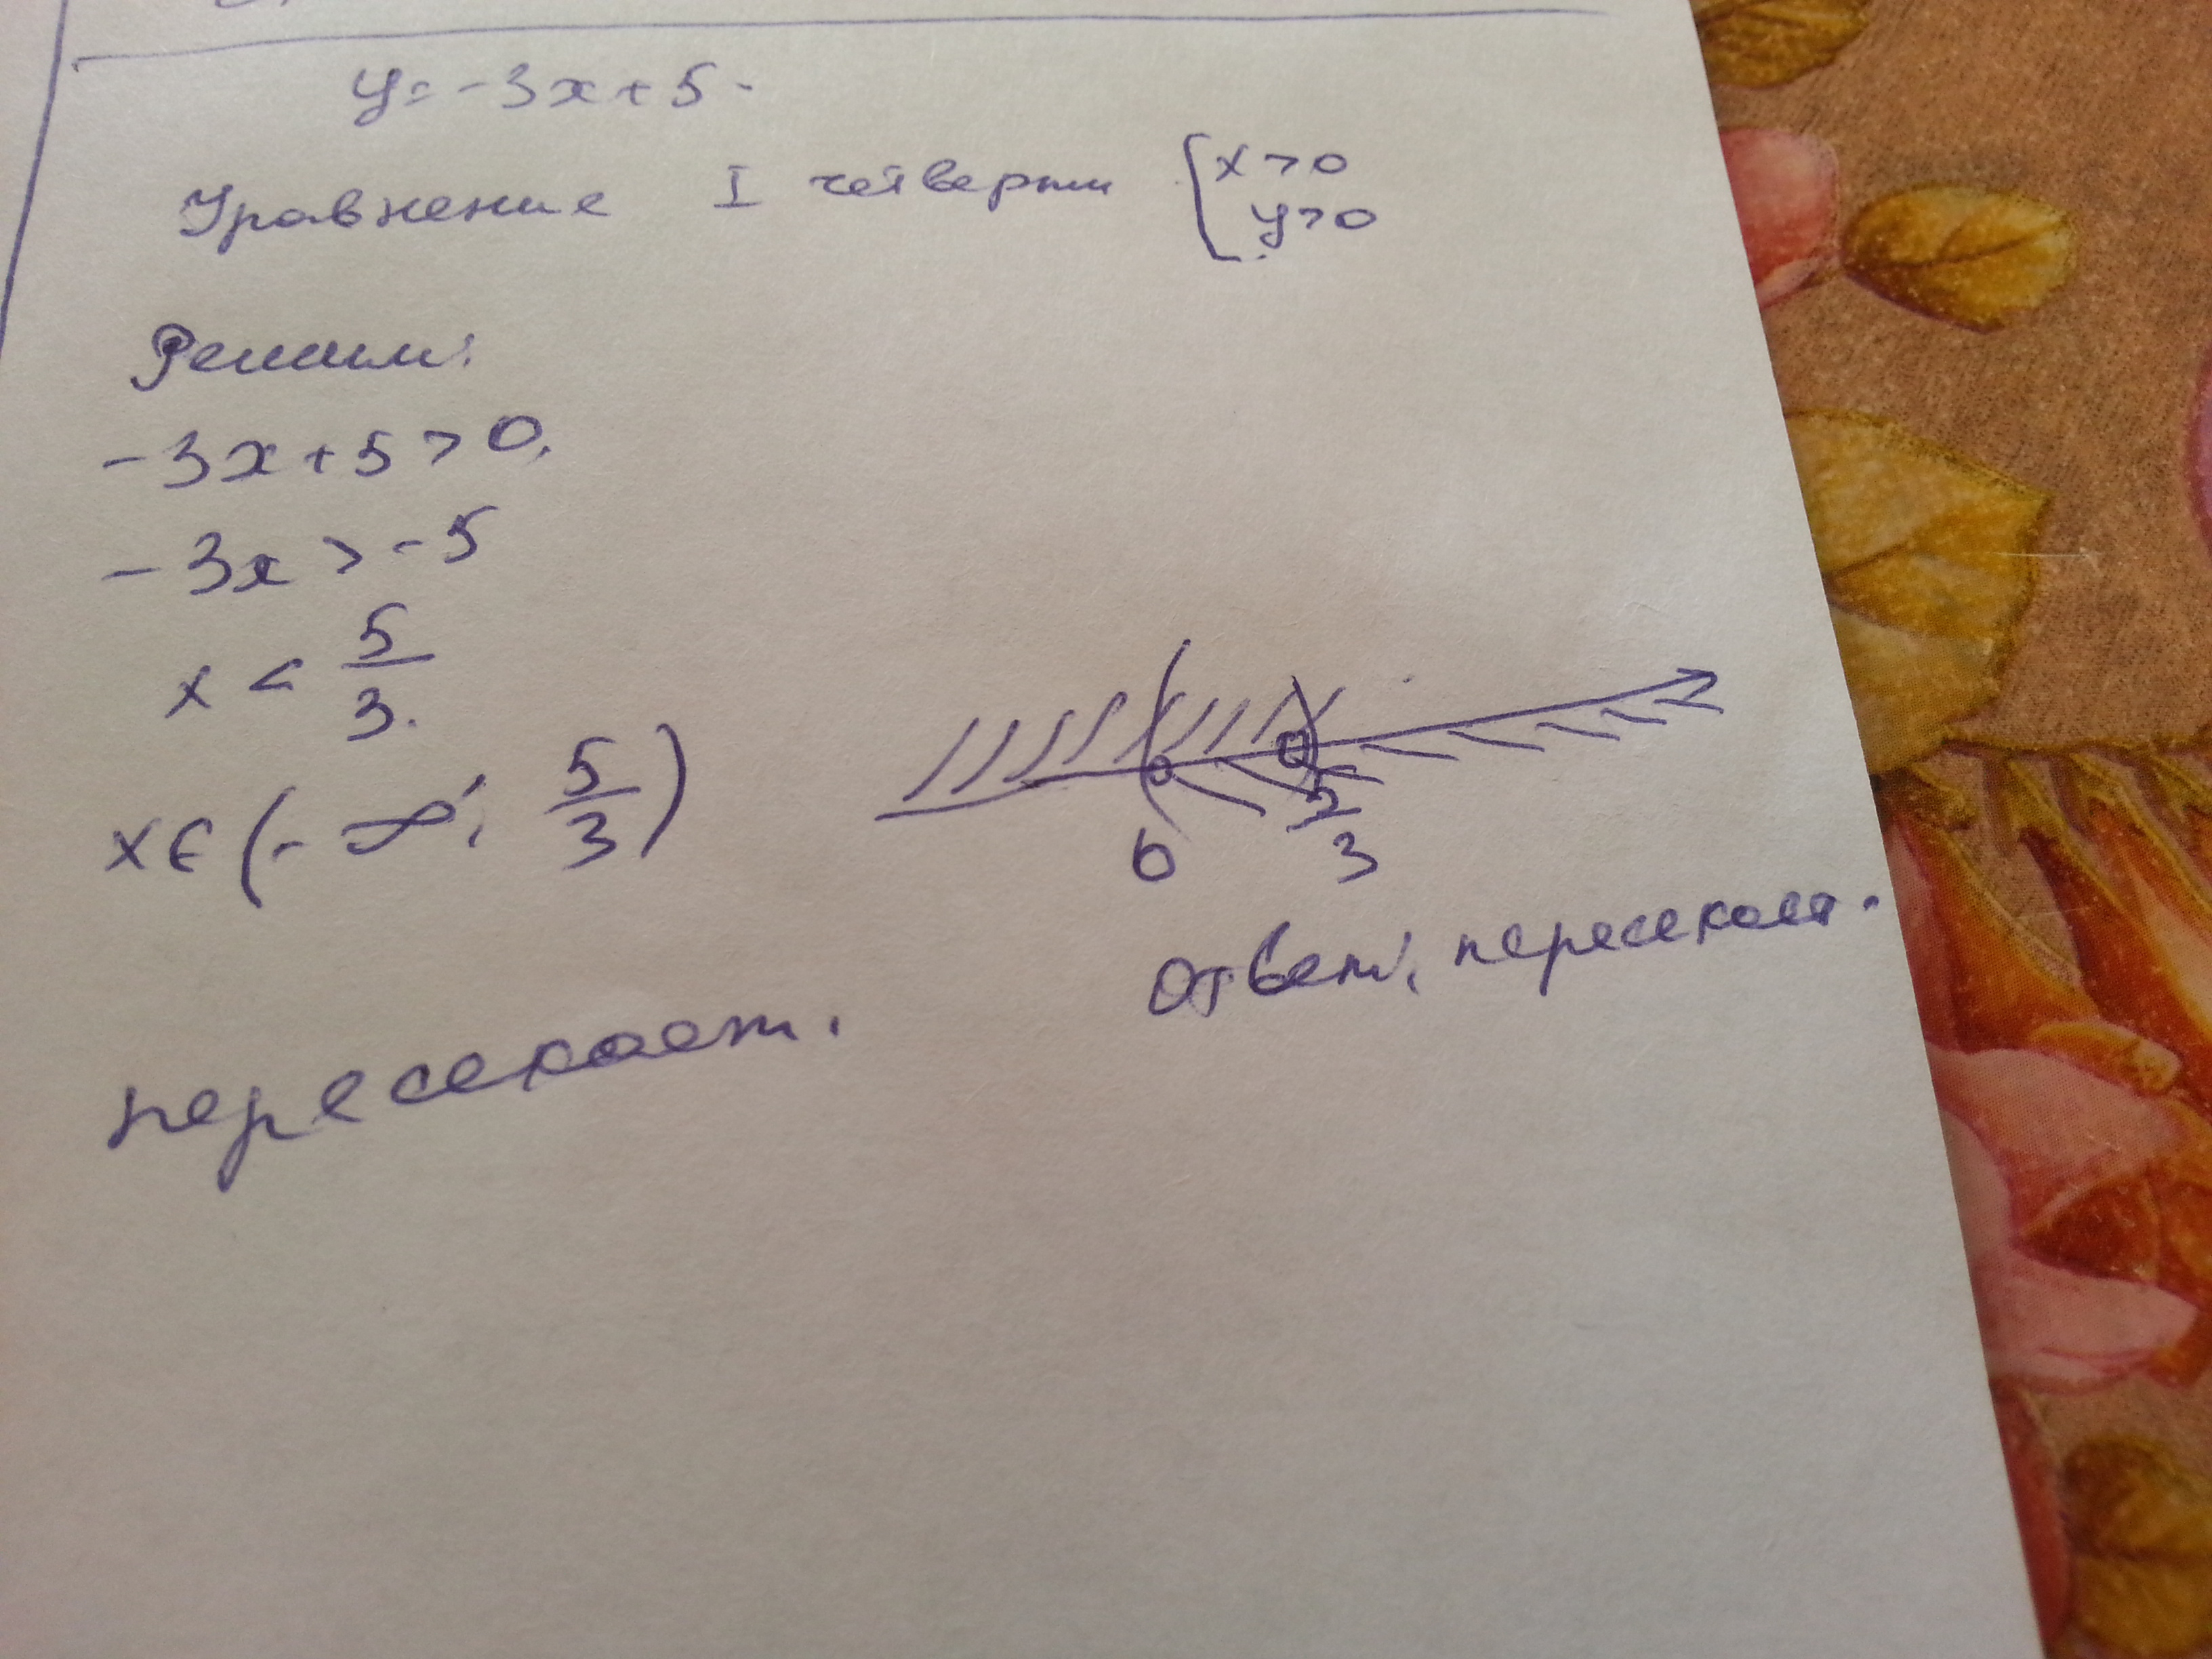 y=-3x+5.
Уравнение I четверти { x>0
y>0
Решим:
-3x+5>0.
-3x>-5
x < 5/3.
x∈(-∞; 5/3)
0
3
Ответ: пересекает.
пересекает.